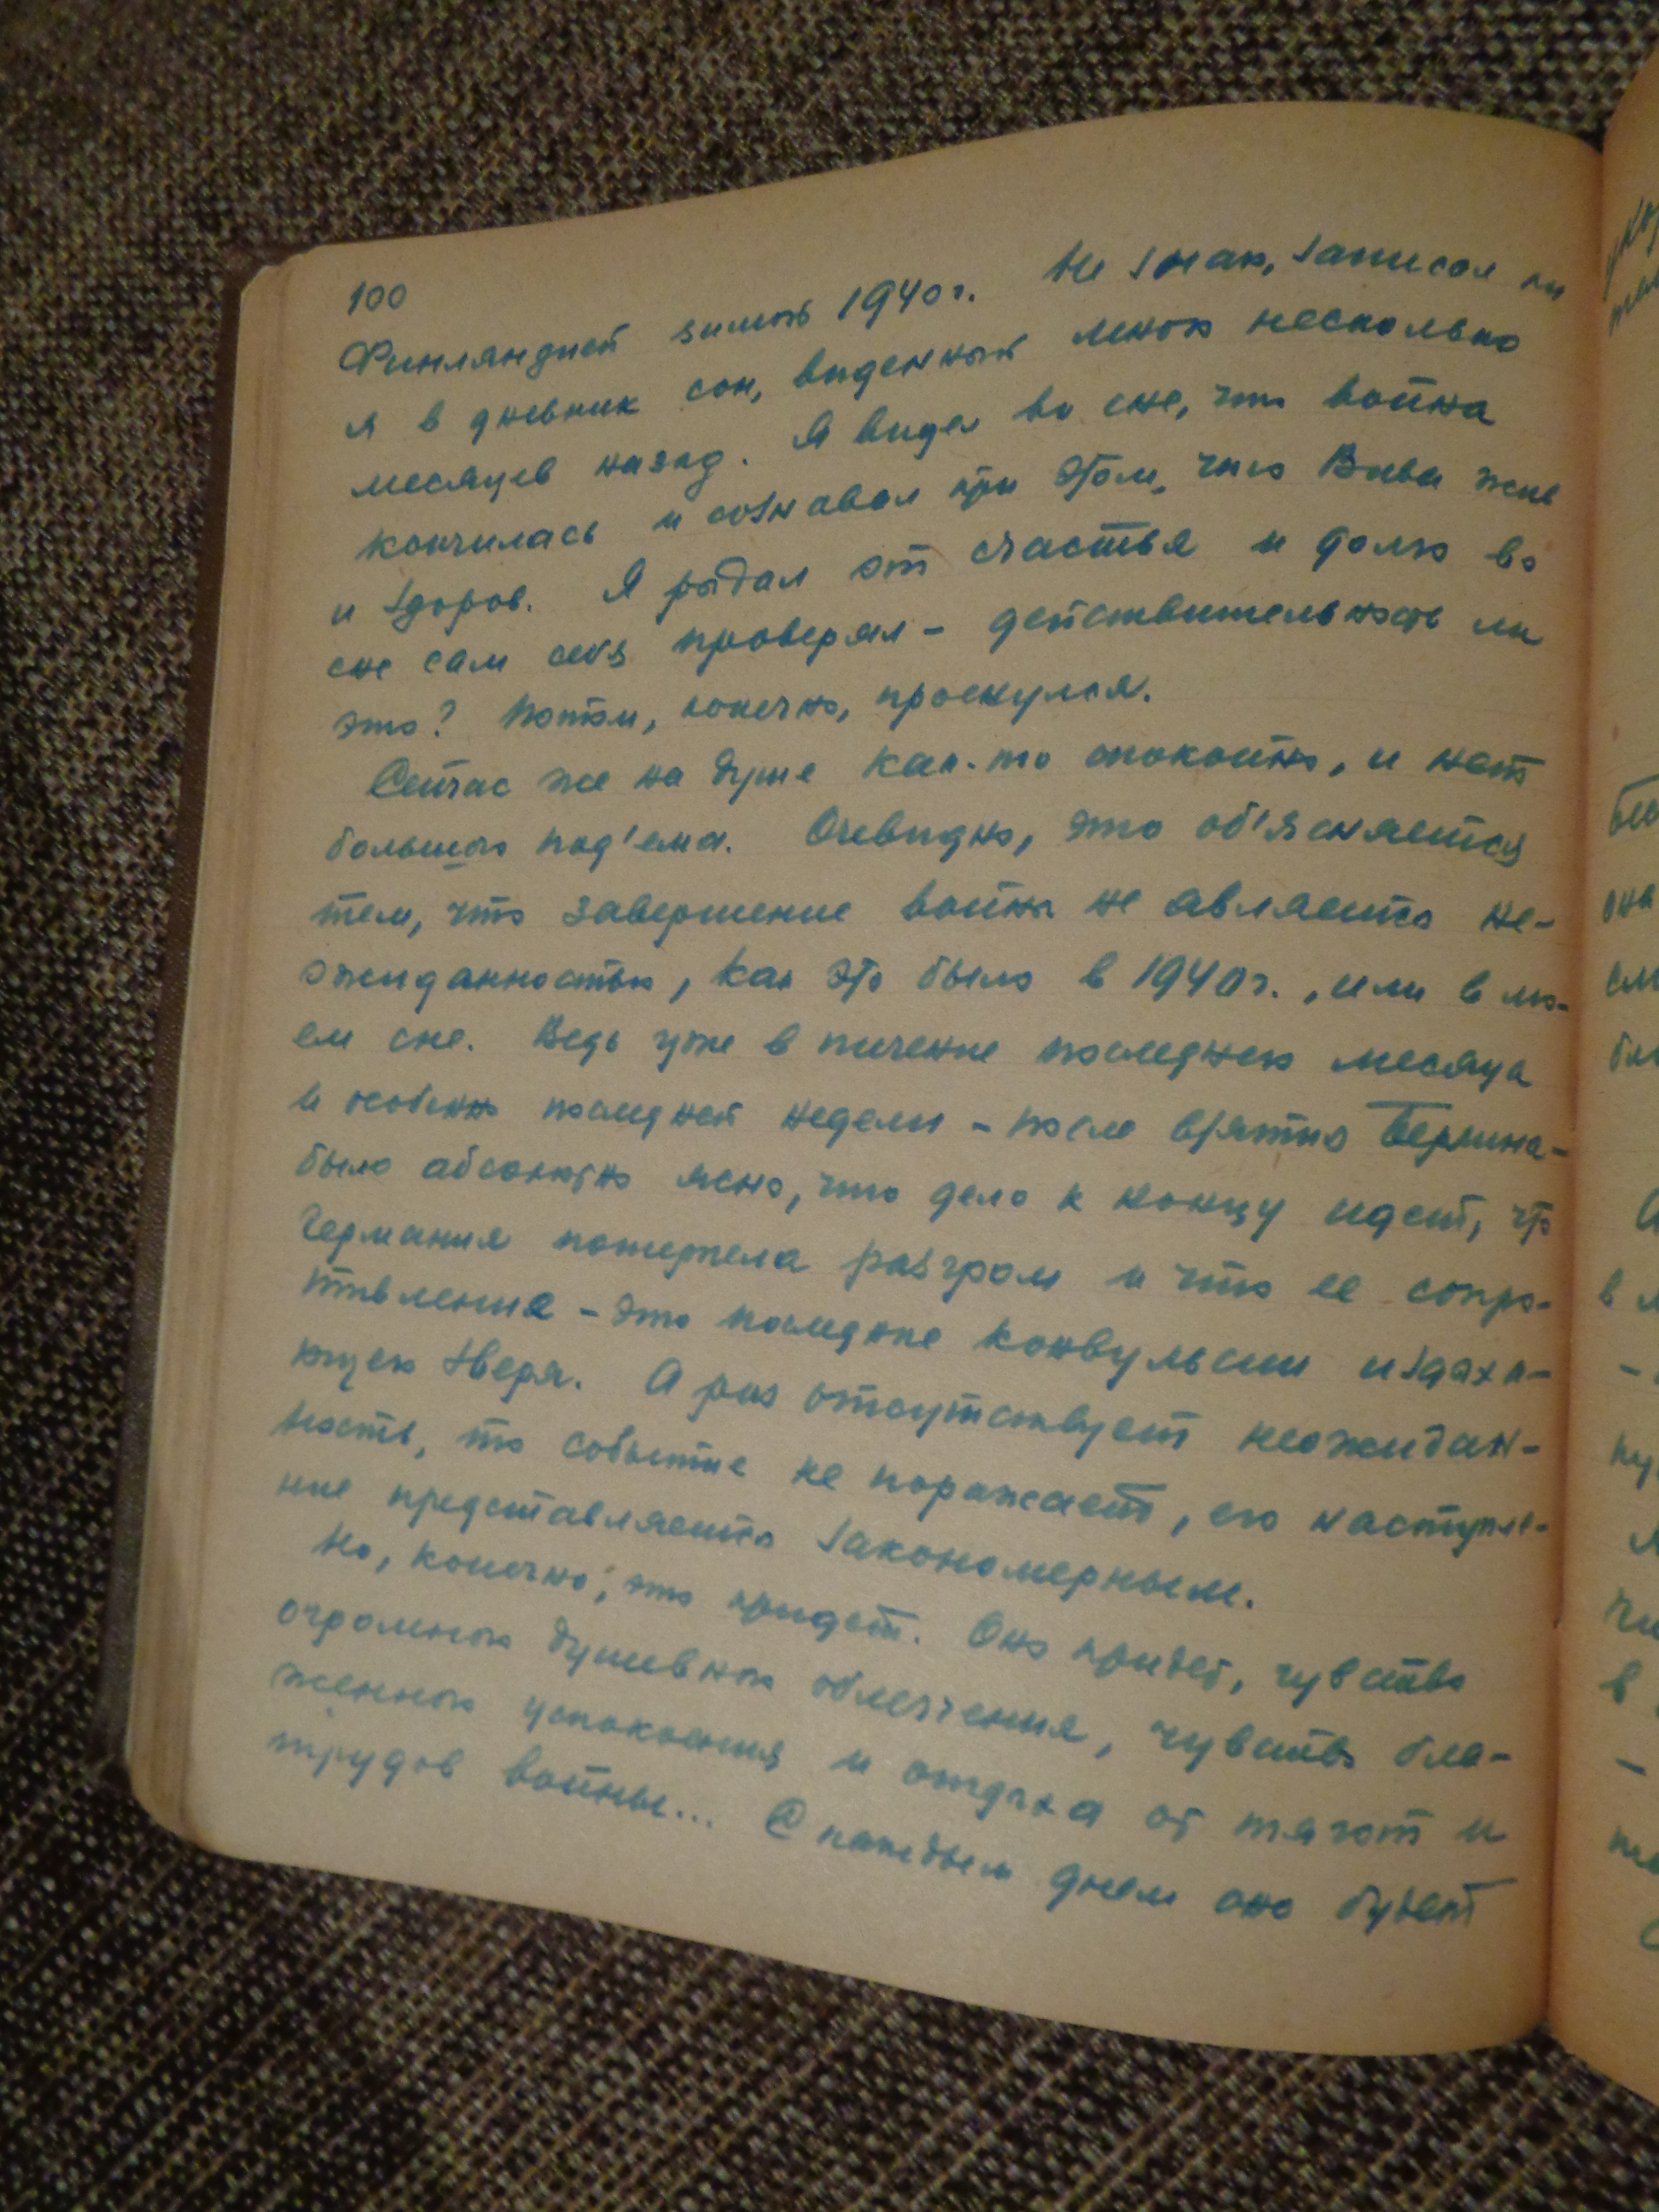 100
Финляндией зимою 1940 г. Не знаю, записал ли
я в дневник сон, виденный мною несколько
месяцев назад. Я видел во сне, что война
кончилась и сознавал при этом, что Вива жив
и здоров. Я рыдал от счастья и долго во
сне сам себя проверял - действительность ли
это? Потом, конечно, проснулся.
Сейчас же на душе как-то спокойно, и нет
большого под'ема. Очевидно, это об'ясняется
тем, что завершение войны не является не-
ожиданностью, как это было в 1940 г., или в мо-
ем сне. Ведь уже в течение последнего месяца
и особенно последней недели - после взятия Берлина -
было абсолютно ясно, что дело к концу идет, что
Германия потерпела разгром и что ее сопро-
тивление - это последние конвульсии издыха-
ющего зверя. А раз отсутствует неожидан-
ность, то событие не поражает, его наступле-
ние представляется закономерным.
Но, конечно, это придет. Оно придет, чувство
огромного душевного облегчения, чувство бла-
женного успокоения и отдыха от тягот и
трудов войны... С каждым днем оно будет